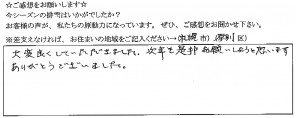 ☆ご感想をお願いします☆
今シーズンの排雪はいかがでしたか？
お客様の声が、私たちの原動力になっています。ぜひ、ご感想をお聞かせ下さい。
※差支えなければ、お住まいの地域をご記入ください→（札幌市）厚別区）
大変良くしていただきました。次年も是非お願いしようと思います
ありがとうございました。